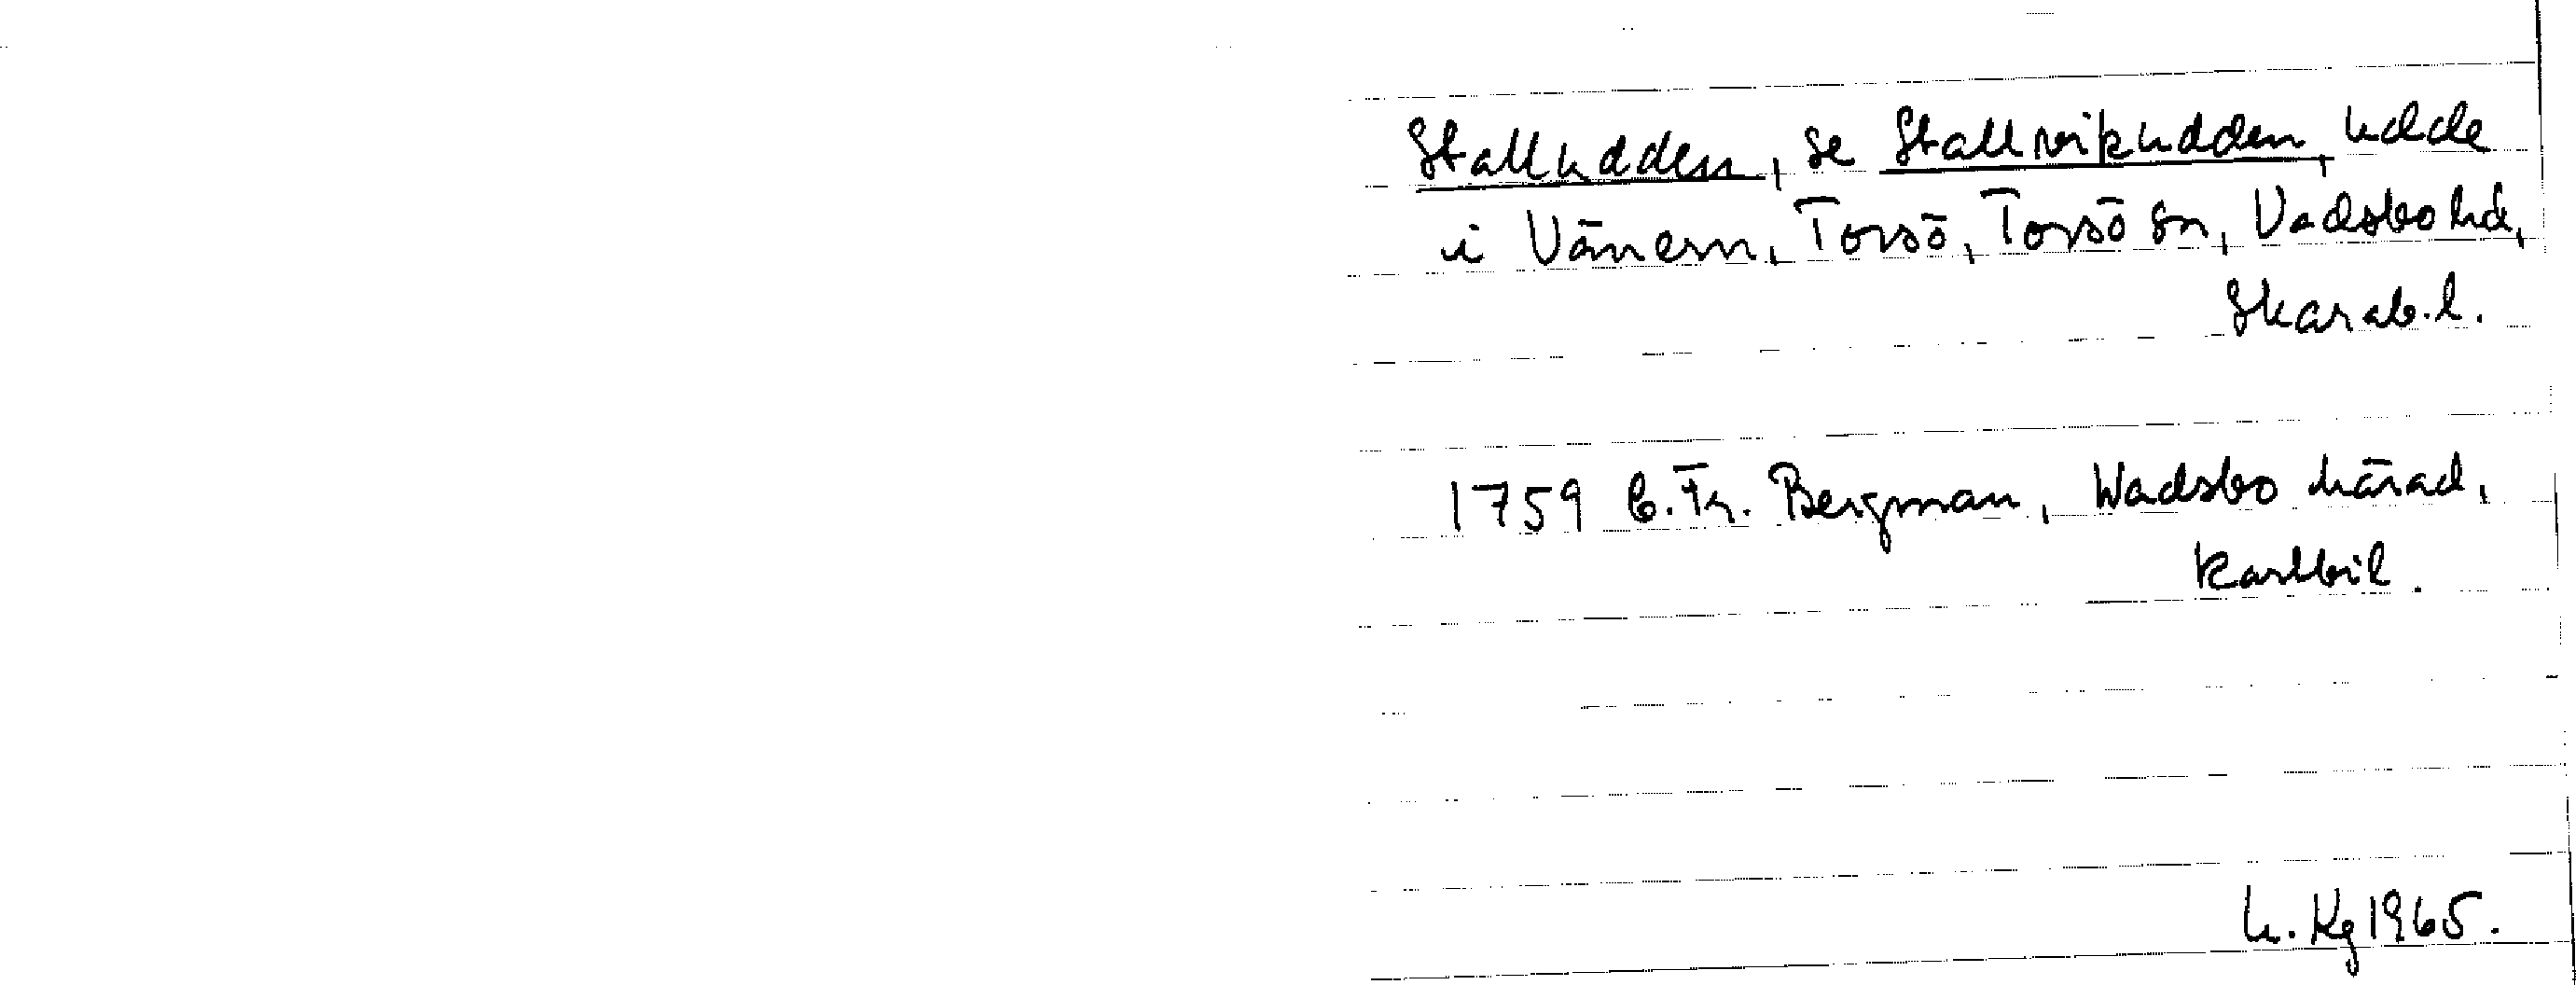 Stalludden, se Stallvikudden, udde
i Vänern, Torsö, Torsö sn, Vadsbo hd,
Skarab.l.
1759 C. Fr. Bergman, Wadsbo härad,
kartbil.
h. Kg 1965.